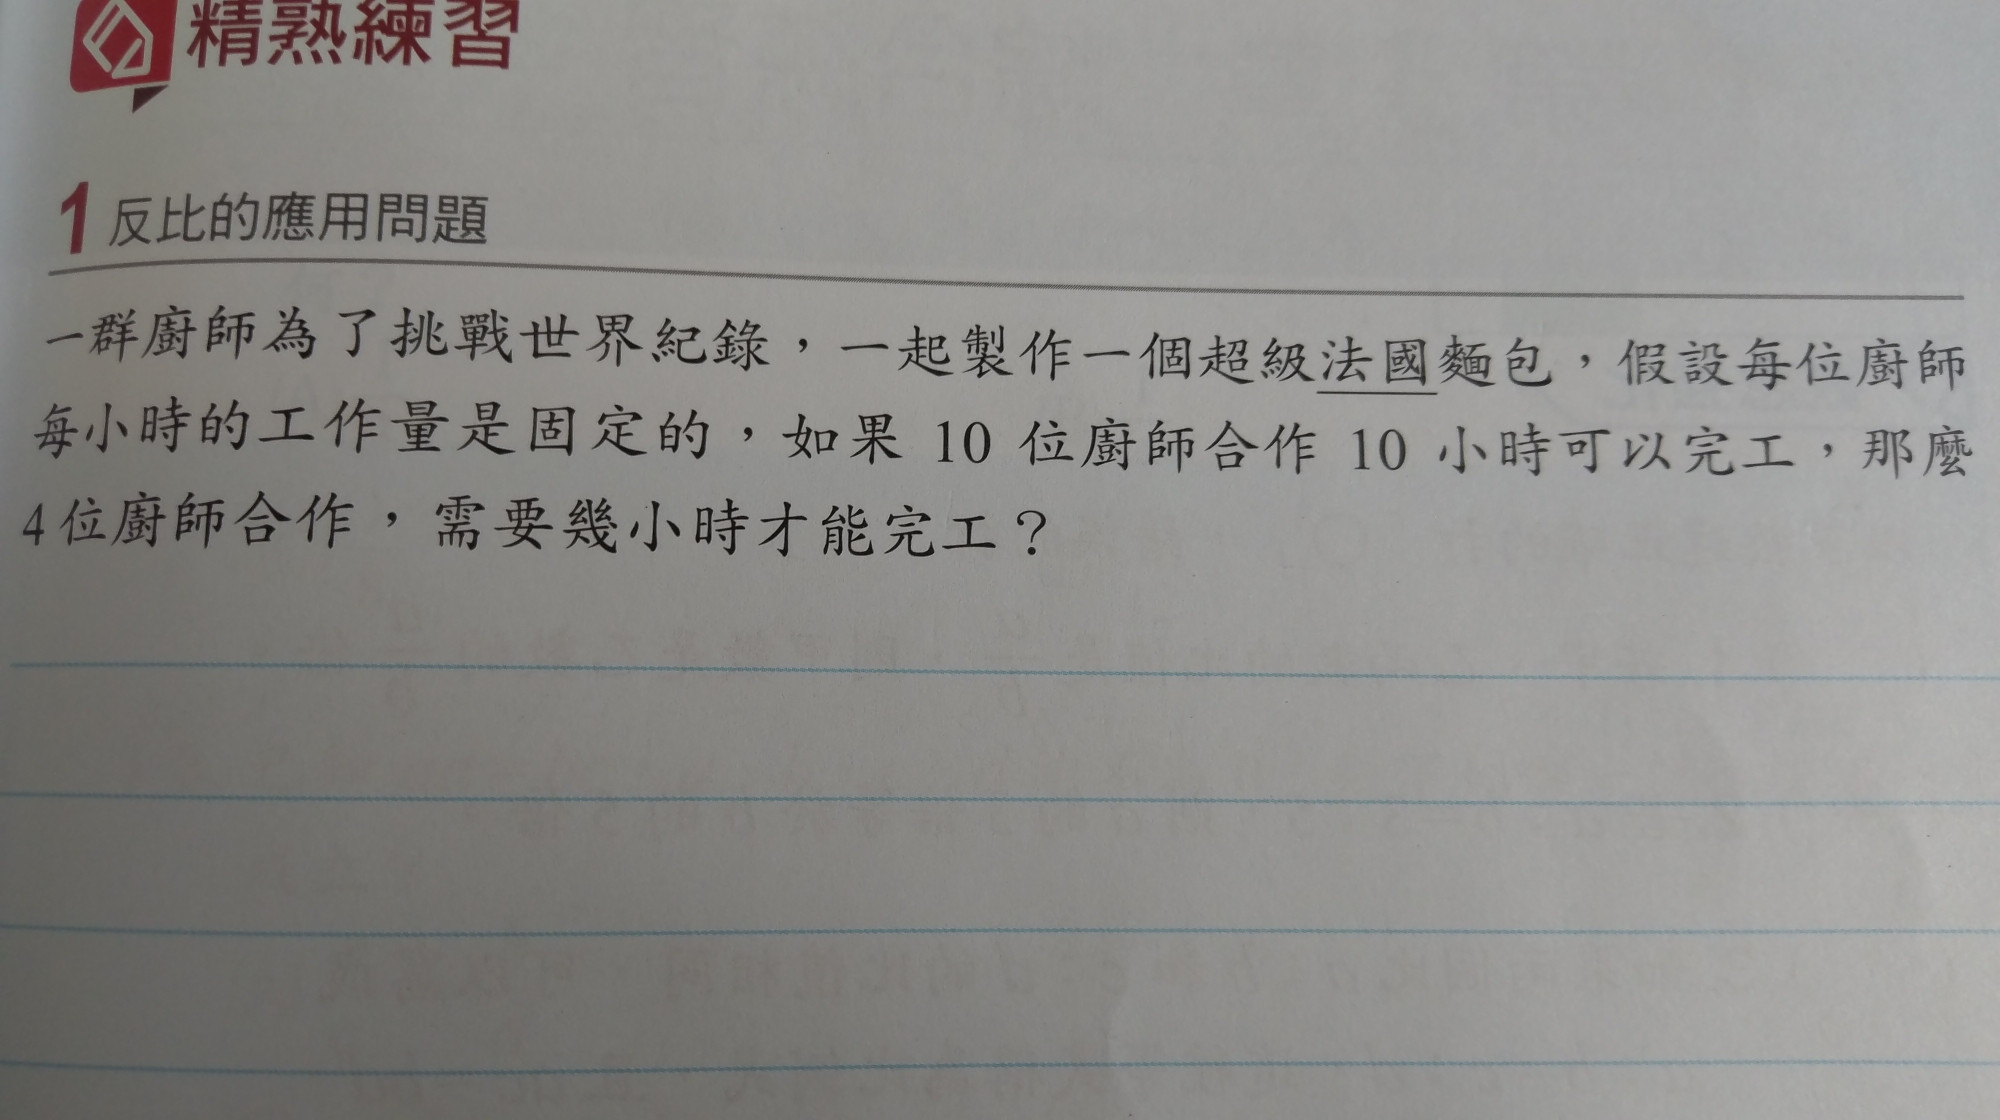 精熟練習
1 反比的應用問題
一群廚師為了挑戰世界紀錄,一起製作一個超級法國麵包,假設每位廚師
每小時的工作量是固定的,如果 10 位廚師合作 10 小時可以完工,那麼
4 位廚師合作,需要幾小時才能完工?